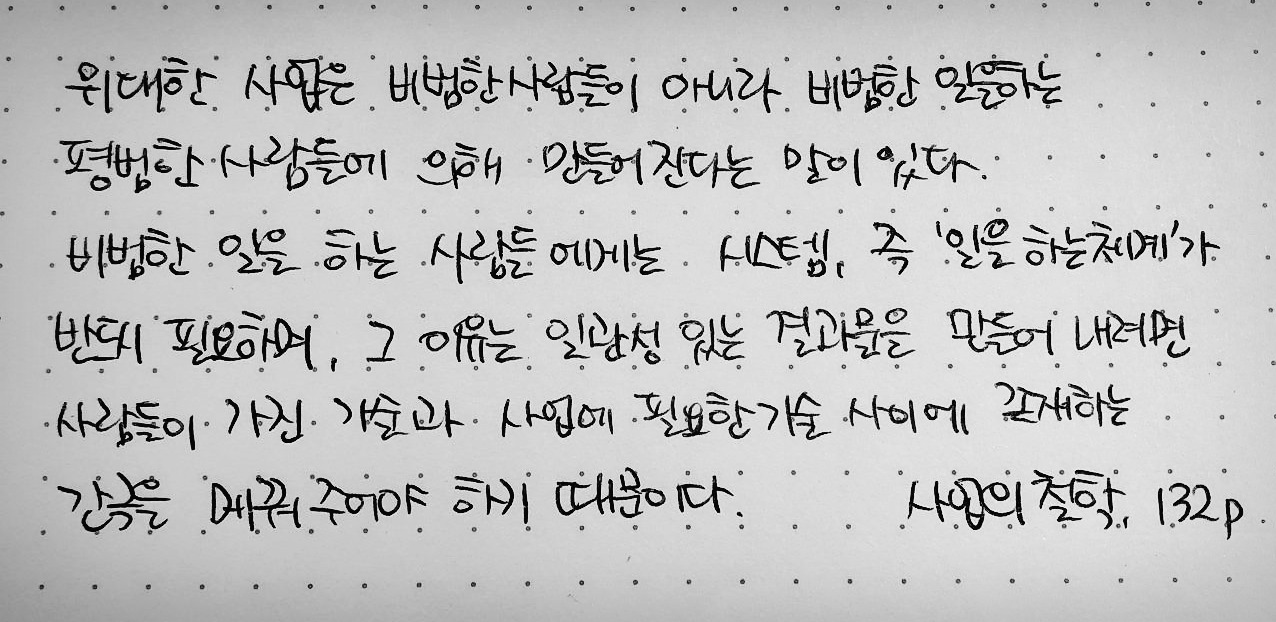 위대한 사업은 비범한 사람들이 아니라 비범한 일을하는
평범한 사람들에 의해 만들어 진다는 말이 있다.
비범한 일을 하는 사람들에게는 시스템, 즉 '일을 하는 체계'가
반드시 필요하며, 그 이유는 일관성 있는 결과물을 만들어 내려면
사람들이 가진 기술과 사업에 필요한 기술 사이에 존재하는
간극을 메꿔 주어야 하기 때문이다. 사업의 철학, 132p